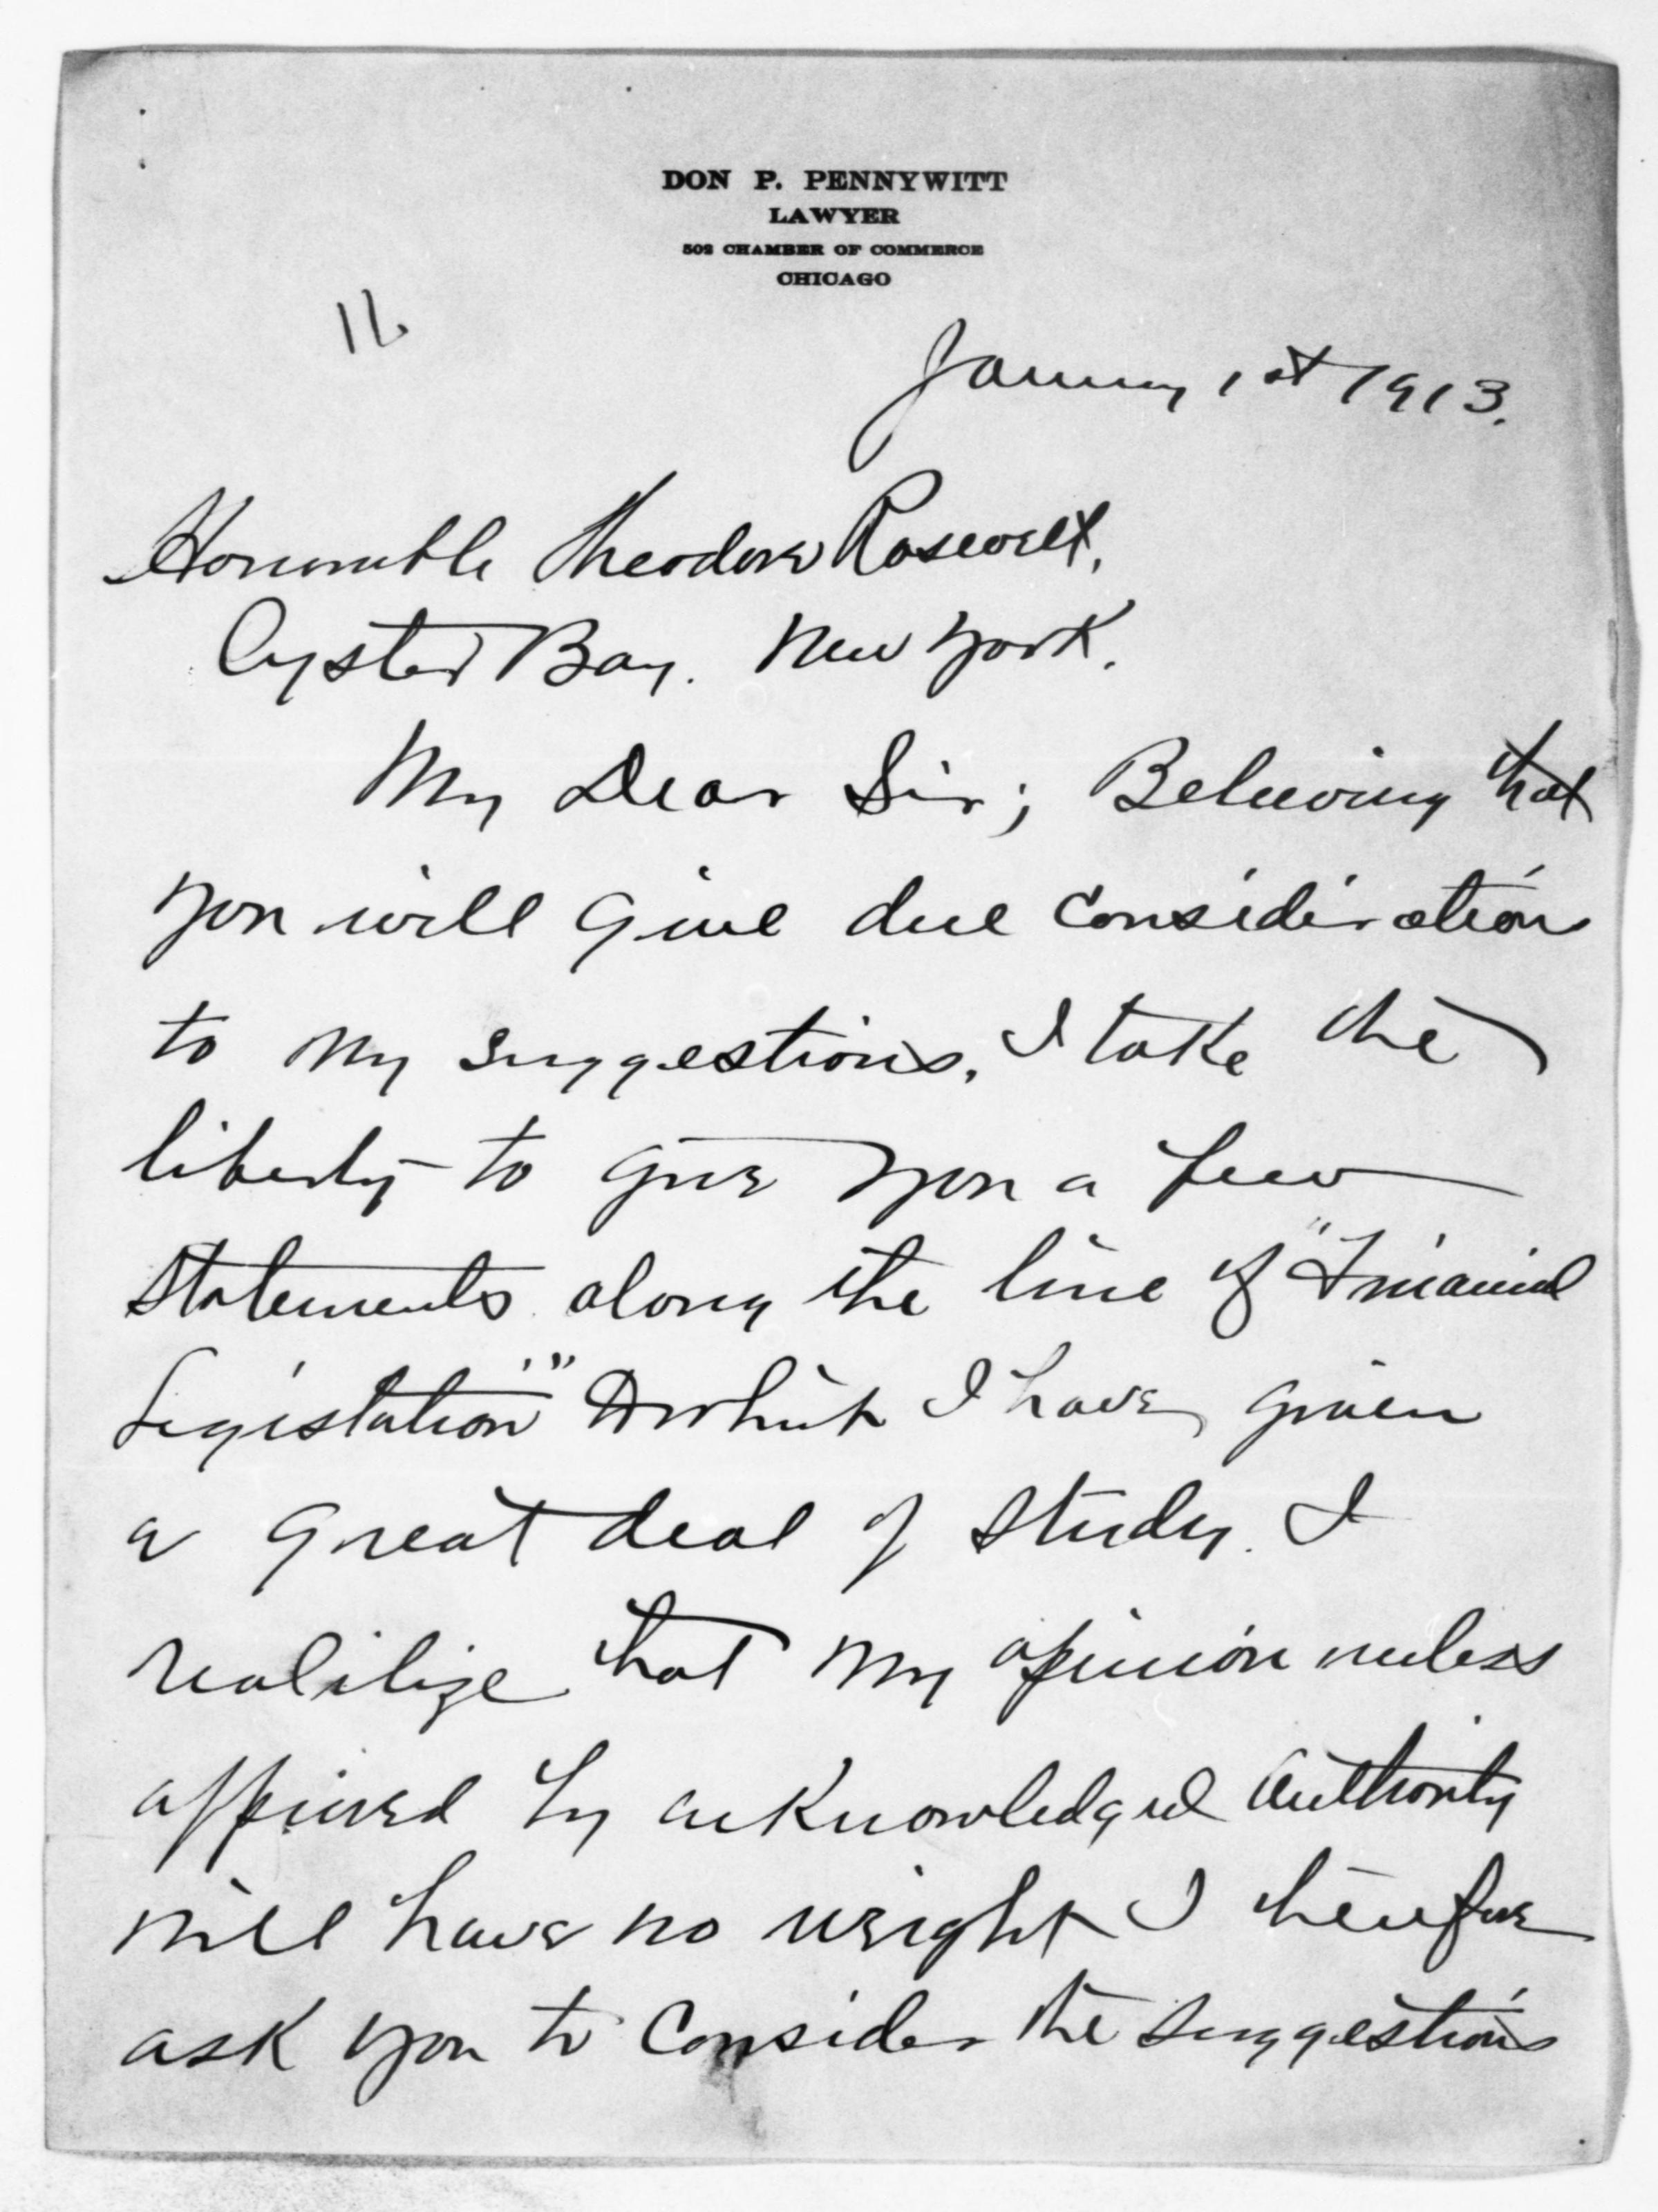 DON P. PENNYWITT
LAWYER
502 CHAMBER OF COMMERCE
CHICAGO
January 1st 1913.
Honorable Theodore Roosevelt,
Oyster Bay. New York.
My Dear Sir; Believing that
you will give due consideration
to my suggestions, I take the
liberty to give you a few
statements along the line of "Financial
Legislation" which I have given
a great deal of study. I
realilize that my opinion unless
affirmed by acknowledged authority
will have no weight I therefore
ask you to consider the suggestions